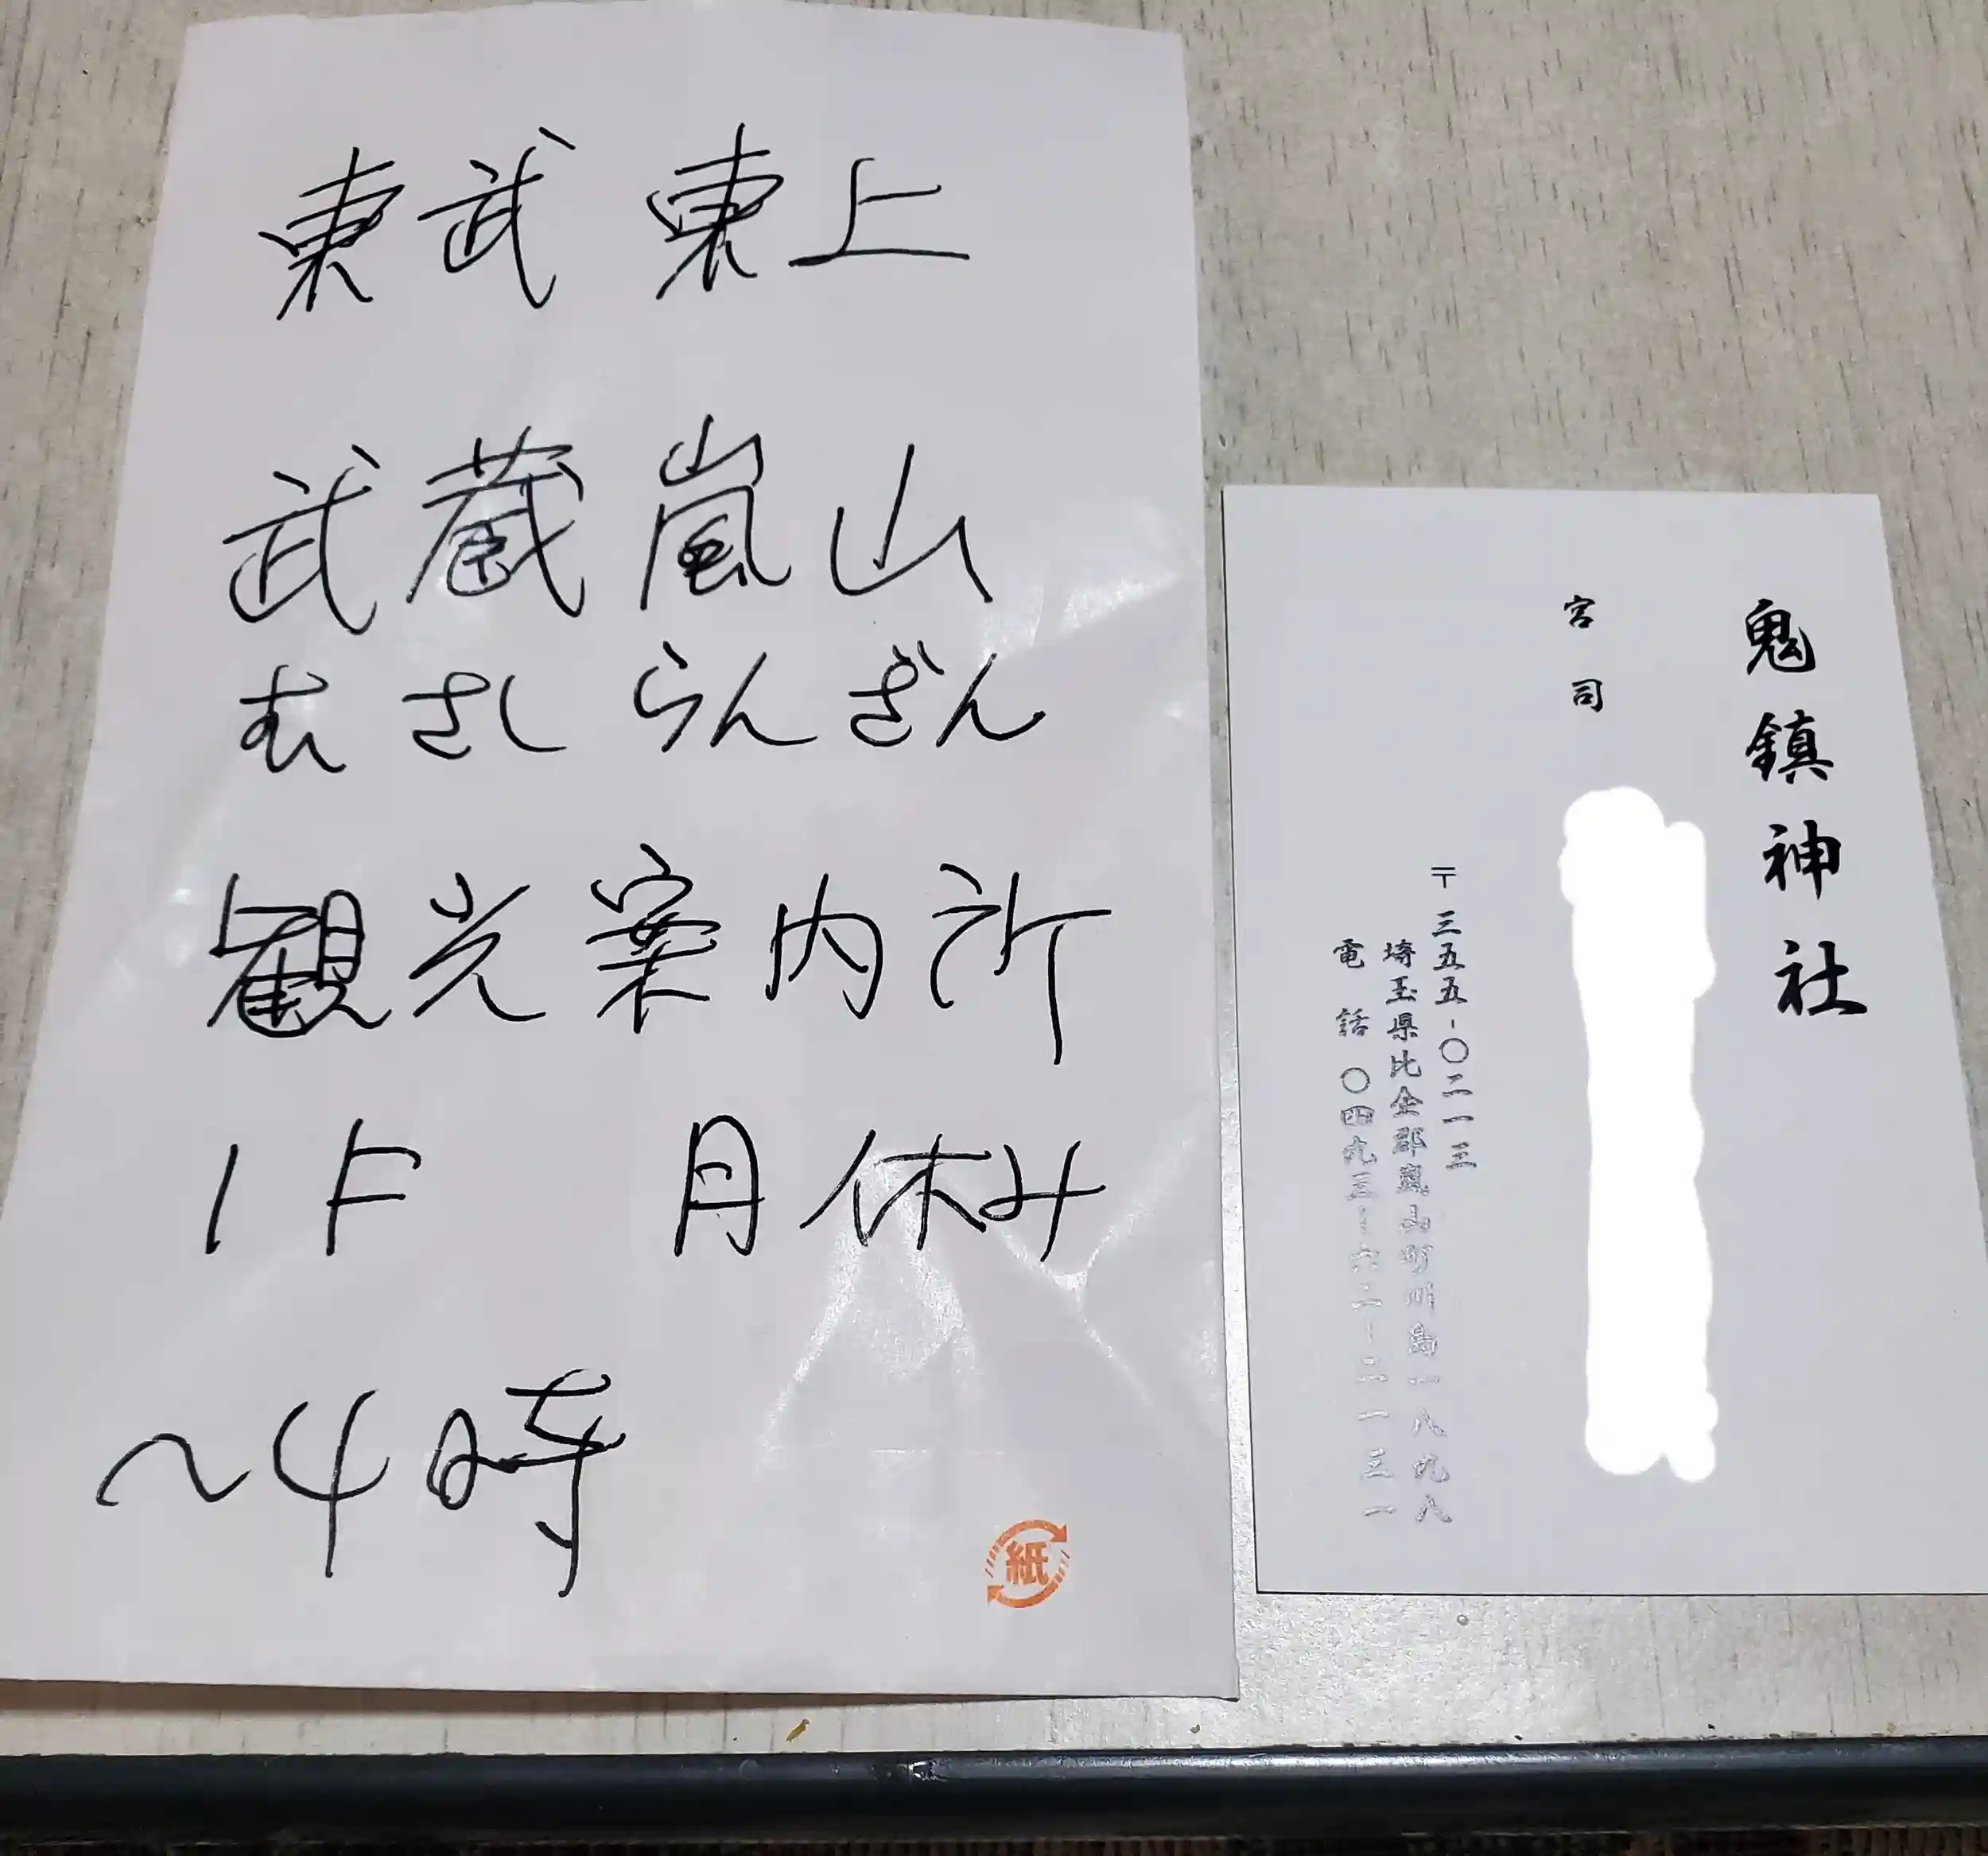 東武東上
武蔵嵐山
むさしらんざん
観光案内所
1F 月休み
〜4時
紙
鬼鎮神社
宮司
〒三五五-〇二一三
埼玉県比企郡嵐山町川島一八九八
電話 〇四九三-六二-二一三一